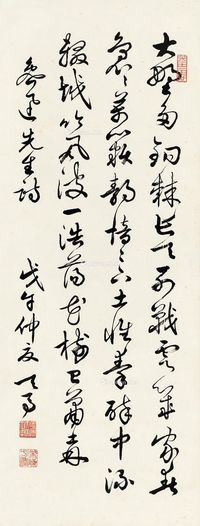 大野多鉤棘長天列戰雲幾家春
裊裊萬籟靜愔愔下土惟秦醉中流
輟越吟風波一浩蕩花樹已蕭森
魯迅先生詩
戊午仲夏